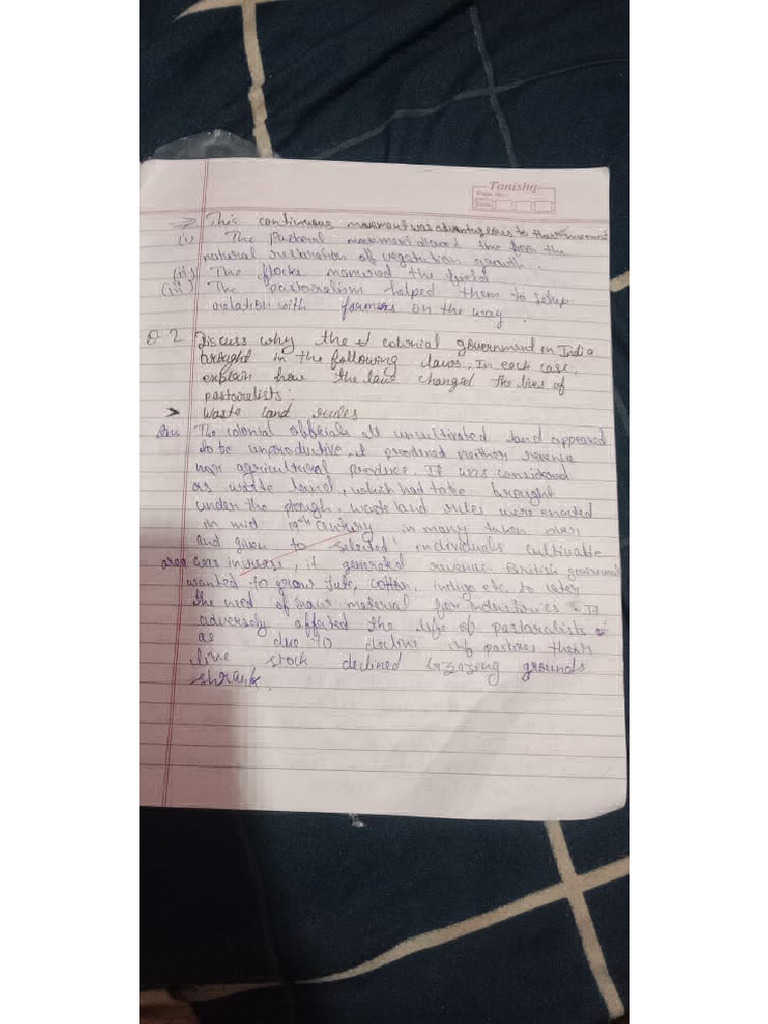 Tanishq
Page No.
Date
→ This continuous movement was to the
(i) The Pastoral movement time for the
natural restoration of vegetation growth.
(ii) The flocks manured the field
(iii) The pastoralism helped them to setup
relation with farmers on the way.
Q.2 Discuss why the colonial government in India
brought in the following laws. In each case,
explain how the law changed the lives of
pastoralists:
> Waste land rules
Ans The colonial officials all uncultivated land appeared
to be unproductive, it produced neither revenue
nor agricultural produce. It was considered
as waste land, which had to be brought
under the plough. waste land rules were enacted
in mid 19th century in many taken over
and given to selected individuals cultivable
area was increase, it generated revenue. British government
wanted to grow Jute, cotton, indigo etc. to cater
the need of raw material for industries. It
adversly affected the life of pastoralists
as due to decline of pastures their
live stock declined grazing grounds
shrank.